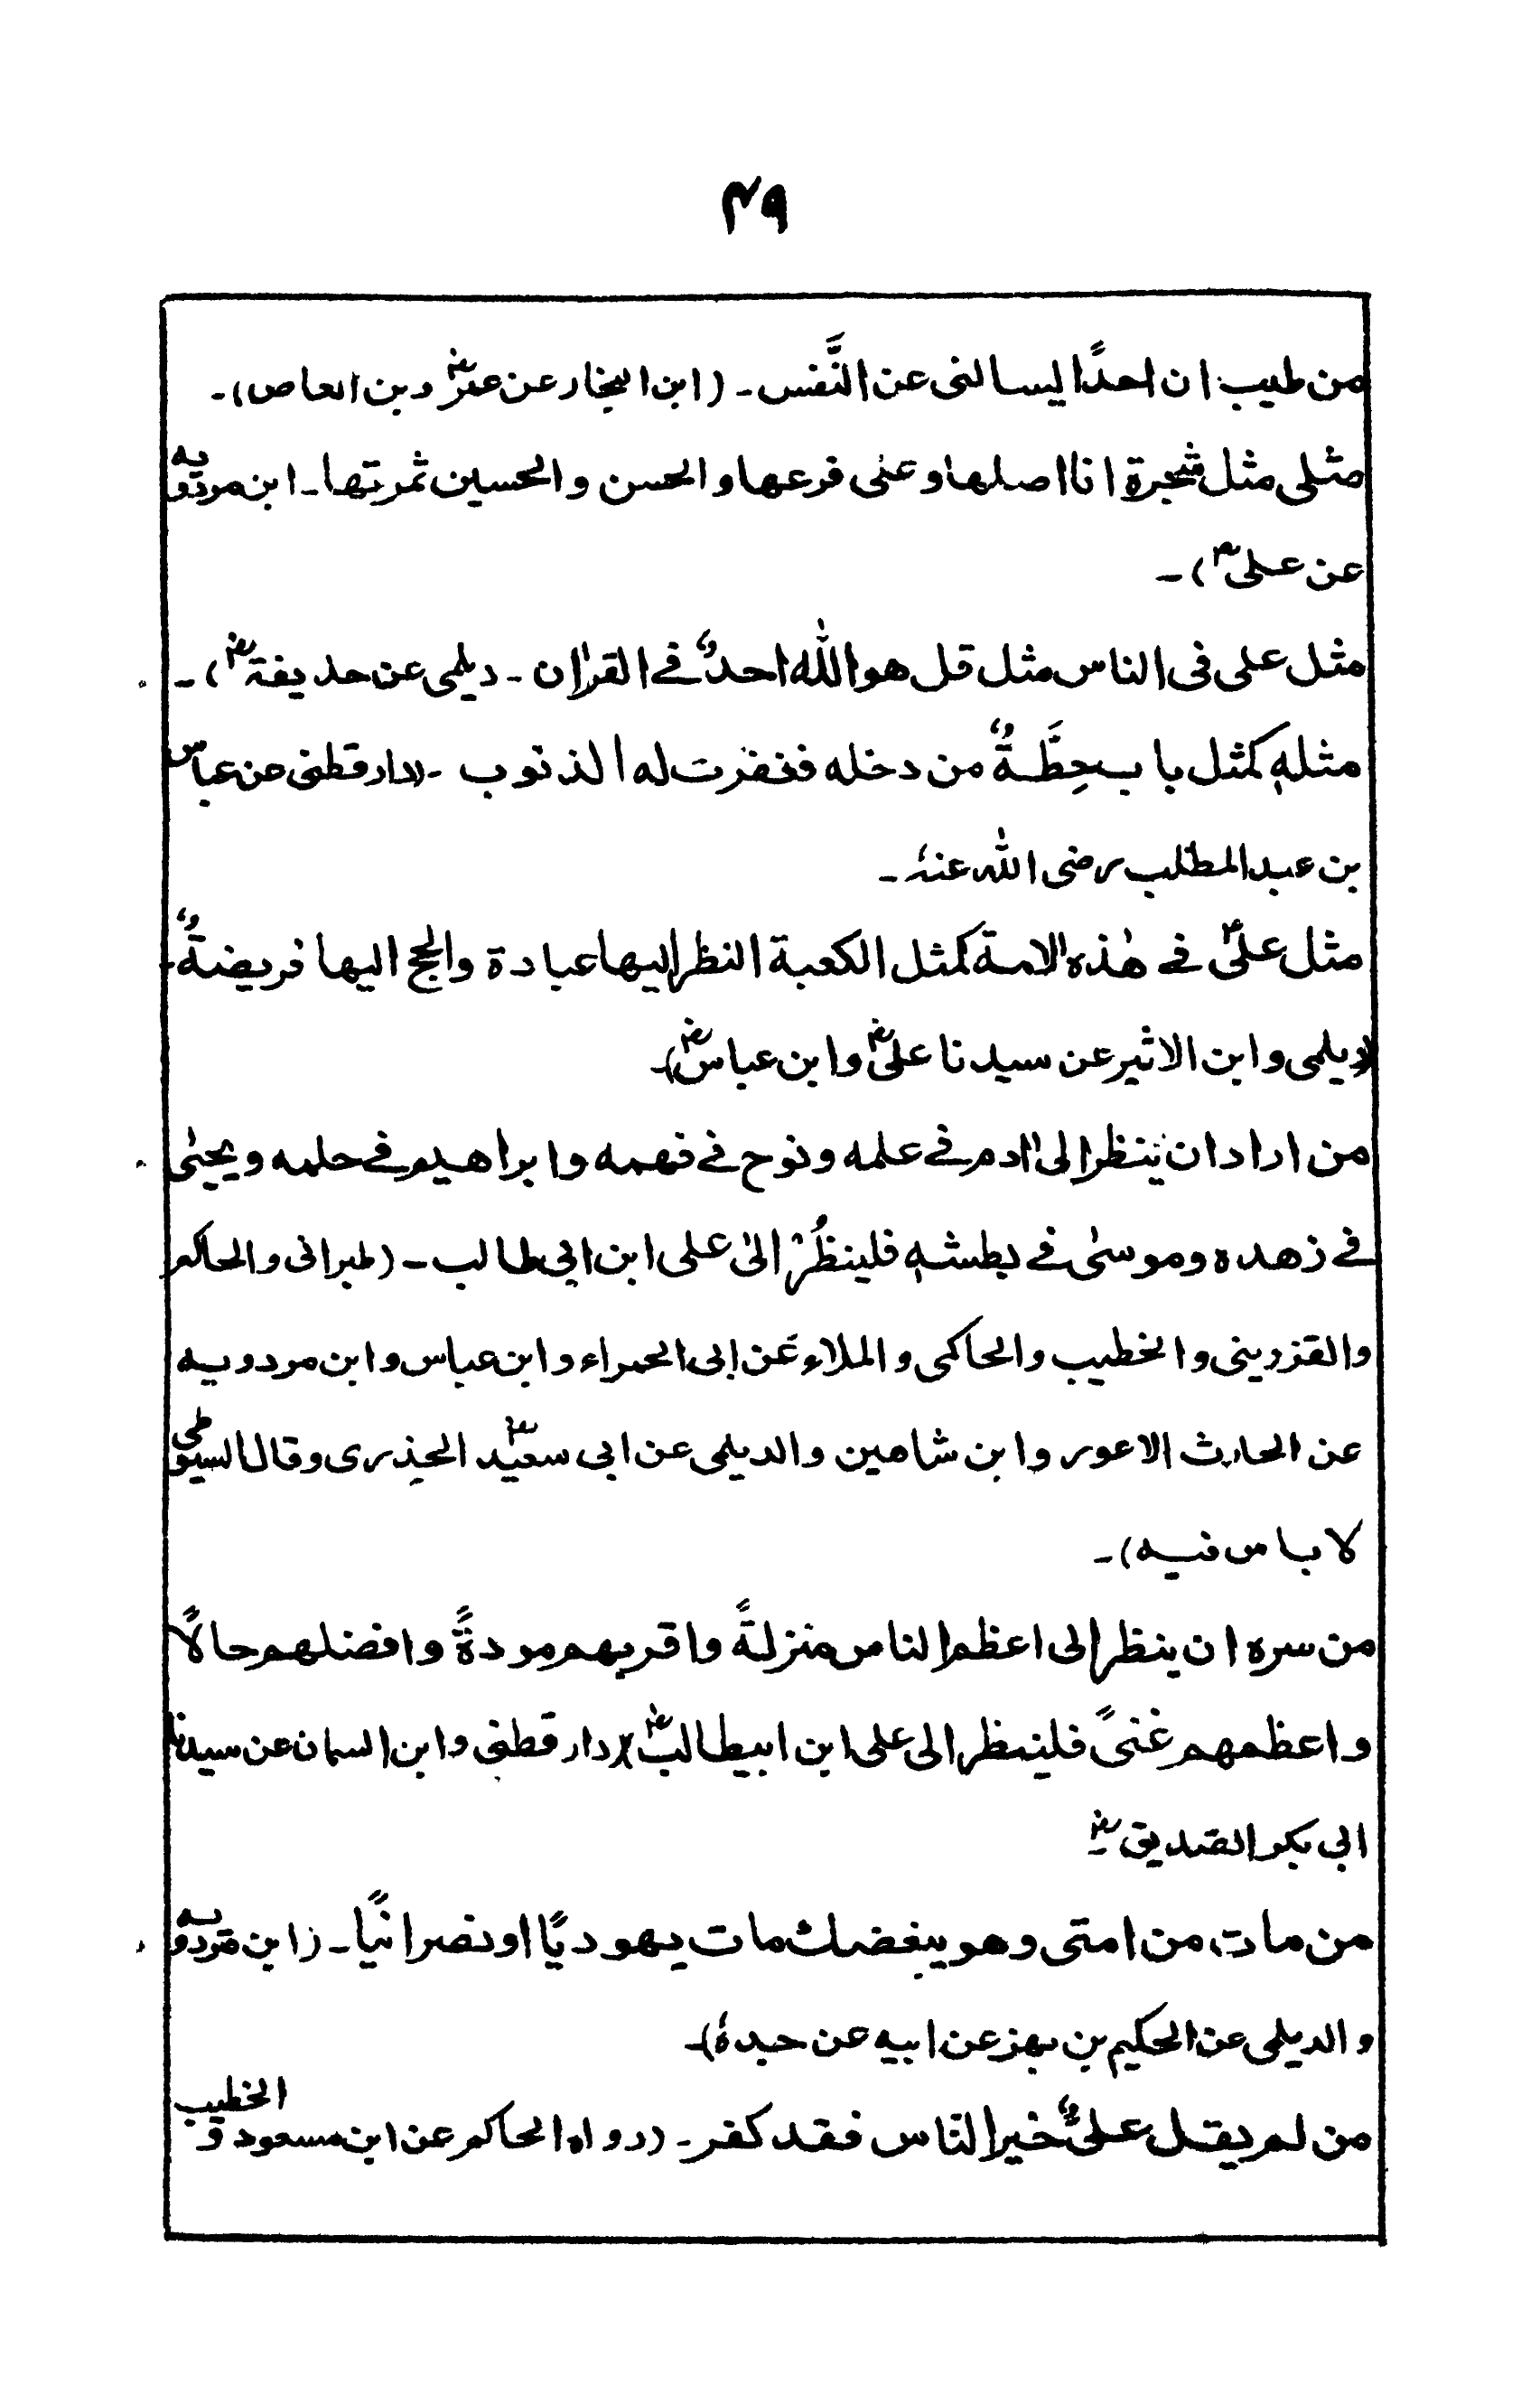 ۴۹
من طيب ان احدًا ليسالنى عن النَّفس ـ (ابن النجار عن عمرؓ وبن العاص)ـ
مثلى مثل شجرة انا اصلها وعلى فرعها والحسن والحسين ثمرتها ـ ابن مردويه
عن علىؑ)ـ
مثل على فى الناس مثل قل هو اللّٰه احدٌ فے القرٰان ـ ديلمى عن حذيفةؓ)ـ
مثلهٖ كمثل باب حِطَّةٌ من دخله فغفرت له الذنوب ـ (دارقطنى عن عباس
بن عبدالمطلب رضى اللّٰه عنهٗ ـ
مثل علىؑ فے هٰذه الامة كمثل الكعبة النظر اليها عبادة والحج اليها فريضةٌ ـ
(ديلمى وابن الاثير عن سيدنا علىؓ وابن عباسؓ)ـ
من اراد ان ينظر الى اٰدم فے علمه ونوح فے فهمه وابراهيم فے حلمه ويحيٰى
فے زهده وموسىٰ فے بطشهٖ فلينظُرْ الىٰ على ابن ابى طالب ـ (طبرانى والحاكم
والقزوينى والخطيب والحاكمى والملاء عَن ابى الحمراء وابن عباس وابن مردويه
عن الحارث الاعور وابن شاهين والديلمى عن ابى سعيد الخذرى وقال السيوطى
لا باس فيه)ـ
من سره ان ينظر الى اعظم الناس منزلةً واقربهم مودةً وافضلهم حالًا
واعظمهم غنىً فلينظر الى على ابن ابيطالبؓ (دارقطنى وابن السمان عن سيدنا
ابى بكر الصديقؓ ـ
من مات من امتى وهو يبغضك مات يهوديًا او نصرانيًا ـ (ابن مردويه
والديلمى عن الحكيم بن بهز عن ابيه عن جدهٗ)ـ
من لم يقل علىٌّ خير النّاس فقد كفر ـ (رواه الحاكم عن ابن مسعود و الخطيب